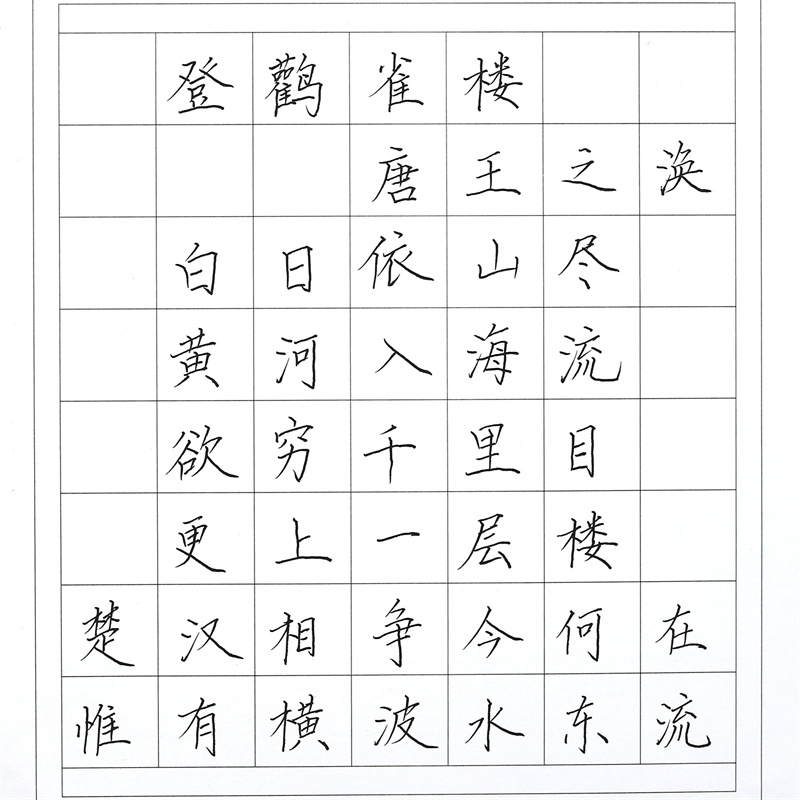 登鹳雀楼
唐王之涣
白日依山尽
黄河入海流
欲穷千里目
更上一层楼
楚汉相争今何在
惟有横波水东流